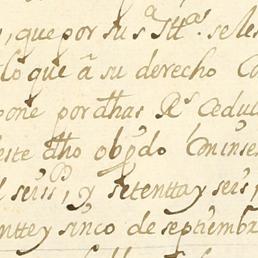 , que por su s.ª Itt.ᵃˢ. se les
lo que â su derecho Co
pone por dhas R.ˢ Cedul
este dho obpdo Coninse
seiss.ᵒˢ, y setentta y seis,
nttey sinco de septiembr